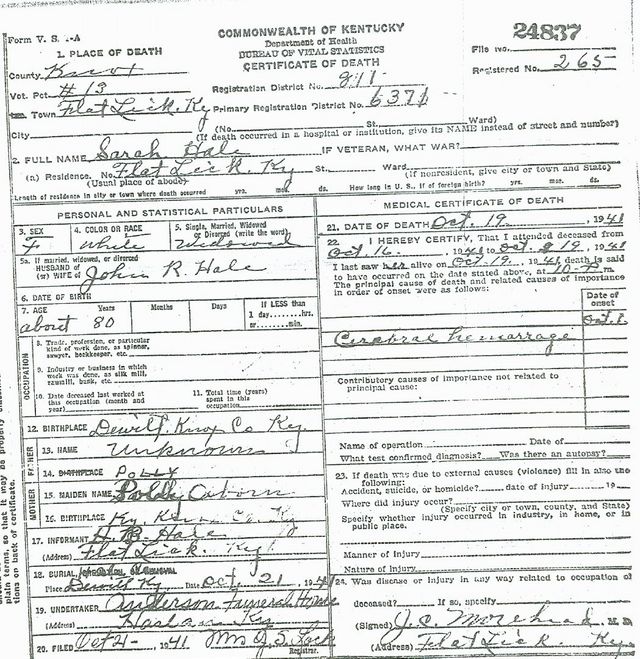 COMMONWEALTH OF KENTUCKY
Department of Health
BUREAU OF VITAL STATISTICS
CERTIFICATE OF DEATH
24837
Form V. S. 1-A
1. PLACE OF DEATH
File No.
County Knox
Registration District No. 811
Registered No. 265
Vot. Pct. #13
Town Flat Lick, Ky Primary Registration District No. 6371
City (No. St. Ward)
(If death occurred in a hospital or institution, give its NAME instead of street and number)
2. FULL NAME Sarah Hale IF VETERAN, WHAT WAR?
(a) Residence. No. Flat Lick, Ky St., Ward.
(Usual place of abode) (If nonresident, give city or town and State)
Length of residence in city or town where death occurred yrs. mos. ds. How long in U. S., if of foreign birth? yrs. mos. ds.
PERSONAL AND STATISTICAL PARTICULARS
3. SEX 4. COLOR OR RACE 5. Single, Married, Widowed or Divorced (write the word)
F White Widowed
5a. If married, widowed, or divorced
HUSBAND of
(or) WIFE of John R. Hale
6. DATE OF BIRTH
7. AGE Years Months Days If LESS than
1 day,......hrs.
about 80 or......min.
OCCUPATION
8. Trade, profession, or particular
kind of work done, as spinner,
sawyer, bookkeeper, etc.
9. Industry or business in which
work was done, as silk mill,
sawmill, bank, etc.
10. Date deceased last worked at
this occupation (month and
year)
11. Total time (years)
spent in this
occupation
12. BIRTHPLACE Dewitt, Knox Co Ky.
FATHER
13. NAME Unknown
14. BIRTHPLACE POLLY
MOTHER
15. MAIDEN NAME Polly Osborn
16. BIRTHPLACE Ky Knox Co Ky
17. INFORMANT H. B. Hale
(Address) Flat Lick, Ky.
18. BURIAL, CREMATION, OR REMOVAL
Place Dewitt Ky Date Oct. 21, 1941
19. UNDERTAKER Anderson Funeral Home
(Address) Harlan Ky
20. FILED Oct 21- 1941 Mrs J. S. Lock
Registrar.
MEDICAL CERTIFICATE OF DEATH
21. DATE OF DEATH Oct. 19, 1941
22. I HEREBY CERTIFY, That I attended deceased from
Oct. 16, 1941 to Oct. 19, 1941
I last saw her alive on Oct. 19, 1941, death is said
to have occurred on the date stated above, at 10-P.m.
The principal cause of death and related causes of importance
in order of onset were as follows:
Date of
onset
Oct. 8
Cerebral hemorrage
Contributory causes of importance not related to
principal cause:
Name of operation Date of
What test confirmed diagnosis? Was there an autopsy?
23. If death was due to external causes (violence) fill in also the
following:
Accident, suicide, or homicide? date of injury 19
Where did injury occur?
(Specify city or town, county, and State)
Specify whether injury occurred in industry, in home, or in
public place.
Manner of injury
Nature of injury
24. Was disease or injury in any way related to occupation of
deceased? If so, specify
(Signed) J. C. Morehead M. D.
(Address) Flat Lick Ky.
plain terms, so that it may be properly
tions on back of certificate.